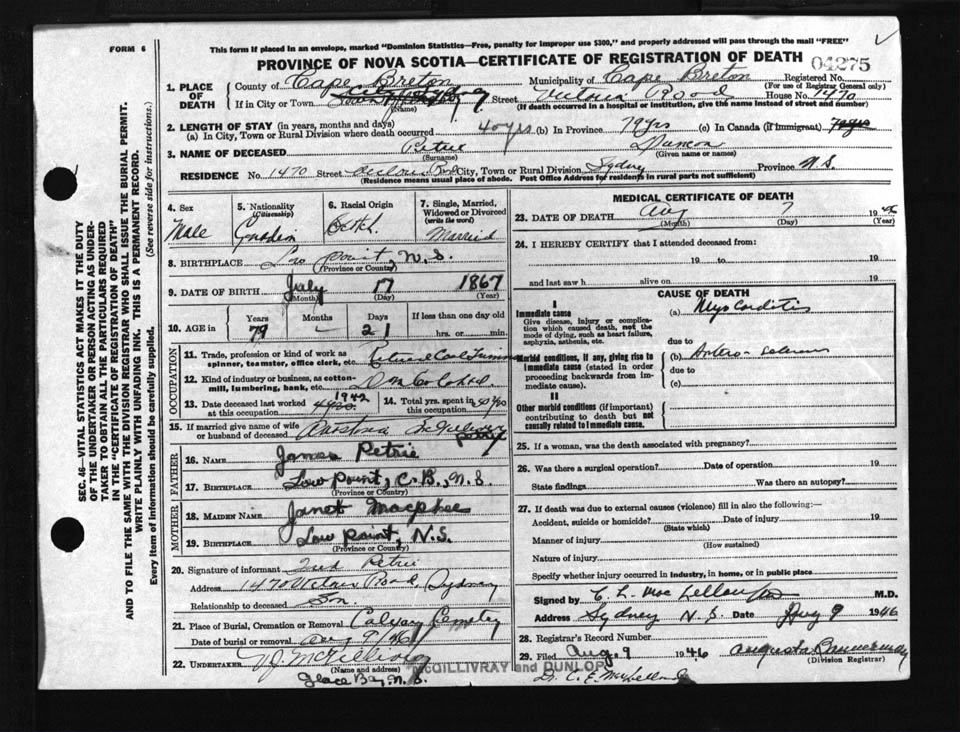 FORM 6
This form if placed in an envelope, marked "Dominion Statistics—Free, penalty for improper use $300," and properly addressed will pass through the mail "FREE"
PROVINCE OF NOVA SCOTIA—CERTIFICATE OF REGISTRATION OF DEATH
04275
1. PLACE OF DEATH
County of Cape Breton Municipality of Cape Breton Registered No.
(For use of Registrar General only)
If in City or Town Street Victoria Road House No. 1470
(Name) (If death occurred in a hospital or institution, give the name instead of street and number)
2. LENGTH OF STAY (in years, months and days)
(a) In City, Town or Rural Division where death occurred 40 yrs (b) In Province 79 yrs (c) In Canada (if immigrant) 79 yrs
3. NAME OF DECEASED Petrie Duncan
(Surname) (Given name or names)
RESIDENCE No. 1470 Street Road City, Town or Rural Division Sydney Province N.S.
(Residence means usual place of abode. Post Office Address for residents in rural parts not sufficient)
4. Sex
Male
5. Nationality
(Citizenship)
6. Racial Origin
7. Single, Married, Widowed or Divorced
(write the word)
Married
8. BIRTHPLACE Low point, N.S.
(Province or Country)
9. DATE OF BIRTH July 17 1867
(Month) (Day) (Year)
10. AGE in Years Months Days If less than one day old
79 — 21 hrs. or min.
OCCUPATION
11. Trade, profession or kind of work as spinner, teamster, office clerk, etc. Coal
12. Kind of industry or business, as cotton-mill, lumbering, bank, etc.
13. Date deceased last worked at this occupation 1942
14. Total yrs. spent in this occupation
15. If married give name of wife or husband of deceased Petrie
FATHER
16. NAME James Petrie
17. BIRTHPLACE Low Point, C.B., N.S.
(Province or Country)
MOTHER
18. MAIDEN NAME Janet Macphee
19. BIRTHPLACE Low point, N.S.
(Province or Country)
20. Signature of informant Petrie
Address 1470 Victoria Road, Sydney
Relationship to deceased Son
21. Place of Burial, Cremation or Removal Calvary Cemetery
Date of burial or removal Aug 9/46
22. UNDERTAKER
(Name and address)
McGILLIVRAY and DUNLOP
Glace Bay, N.S.
MEDICAL CERTIFICATE OF DEATH
23. DATE OF DEATH Aug 7 1946
(Month) (Day) (Year)
24. I HEREBY CERTIFY that I attended deceased from:
19 to 19
and last saw h alive on 19
CAUSE OF DEATH
I
Immediate cause
Give disease, injury or complication which caused death, not the mode of dying, such as heart failure, asphyxia, asthenia, etc.
(a) Myocarditis
due to
Morbid conditions, if any, giving rise to immediate cause (stated in order proceeding backwards from immediate cause).
(b) Arterio-sclerosis
due to
(c)
II
Other morbid conditions (if important) contributing to death but not causally related to immediate cause.
25. If a woman, was the death associated with pregnancy?
26. Was there a surgical operation? Date of operation 19
State findings Was there an autopsy?
27. If death was due to external causes (violence) fill in also the following:—
Accident, suicide or homicide? Date of injury 19
(State which)
Manner of injury
(How sustained)
Nature of injury
Specify whether injury occurred in industry, in home, or in public place
Signed by M.D.
Address Sydney N.S. Date Aug 9 1946
28. Registrar's Record Number
29. Filed Aug. 9 1946 Augusta
(Division Registrar)
SEC. 46—VITAL STATISTICS ACT MAKES IT THE DUTY
OF THE UNDERTAKER OR PERSON ACTING AS UNDERTAKER
TO OBTAIN ALL THE PARTICULARS REQUIRED
IN THE "CERTIFICATE OF REGISTRATION OF DEATH"
AND TO FILE THE SAME WITH THE DIVISION REGISTRAR WHO SHALL ISSUE THE BURIAL PERMIT.
WRITE PLAINLY WITH UNFADING INK. THIS IS A PERMANENT RECORD.
Every item of information should be carefully supplied. (See reverse side for instructions.)